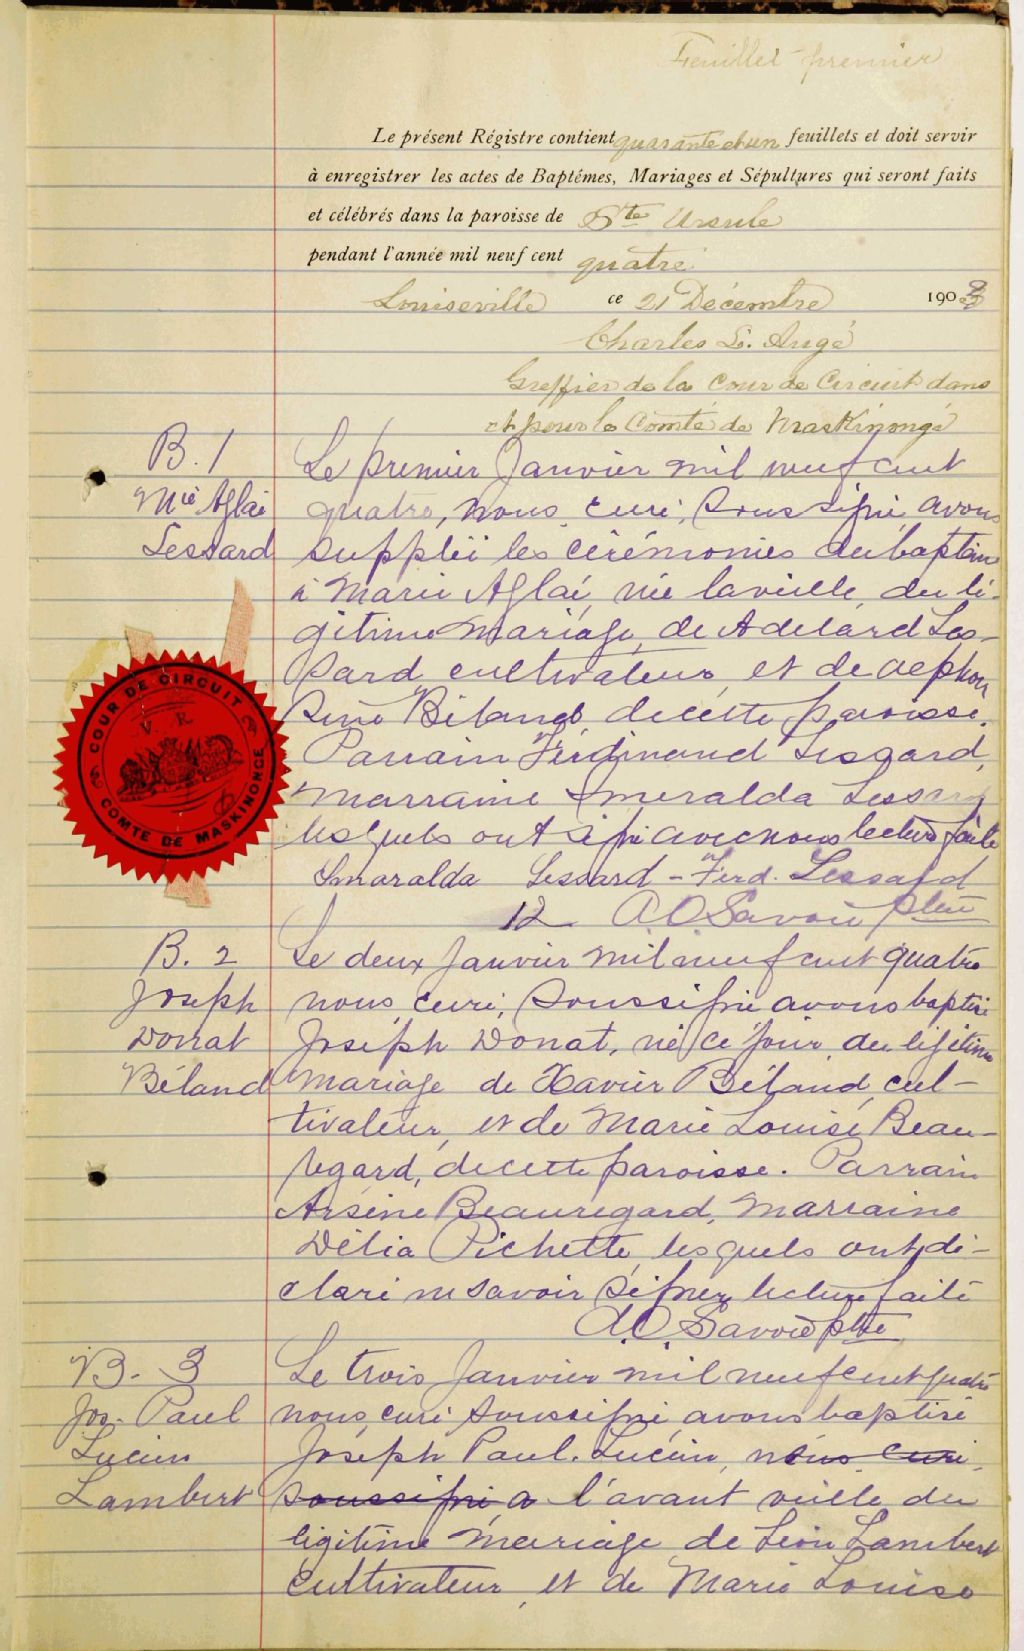 Feuillet premier
Le présent Régistre contient quarante et un feuillets et doit servir
à enregistrer les actes de Baptêmes, Mariages et Sépultures qui seront faits
et célébrés dans la paroisse de Ste Ursule
pendant l'année mil neuf cent quatre
Louiseville ce 21 Décembre 1903
Charles L. Augé
Greffier de la Cour de Circuit dans
et pour le Comté de Maskinongé
B. 1
Mie Aglaé
Lessard
Le premier Janvier mil neuf cent
quatre, nous, curé, soussigné avons
suppléé les cérémonies du baptême
à Marie Aglaé, née la veille, du lé-
gitime mariage de Adelard Les-
sard cultivateur, et de
Béland de cette paroisse.
Parrain Ferdinand Lessard,
marraine Smeralda Lessard
lesquels ont signé avec nous lecture faite
Smaralda Lessard - Ferd. Lessard
12 A.O. Savoie ptre
COUR DE CIRCUIT
V. R.
COMTE DE MASKINONGE
B. 2
Joseph
Donat
Béland
Le deux Janvier mil neuf cent quatre
nous, curé, soussigné avons baptisé
Joseph Donat, né ce jour du légitime
mariage de Xavier Béland, cul-
tivateur, et de Marie Louise Beau-
regard, de cette paroisse. Parrain
Arsène Beauregard, marraine
Délia Pichette, lesquels ont dé-
claré ne savoir signer, lecture faite
A.O. Savoie ptre
B. 3
Jos. Paul
Lucien
Lambert
Le trois Janvier mil neuf cent quatre
nous, curé soussigné, avons baptisé
Joseph Paul Lucien, nous curé
soussigné a l'avant veille du
légitime mariage de Léon Lambert
cultivateur, et de Marie Louise